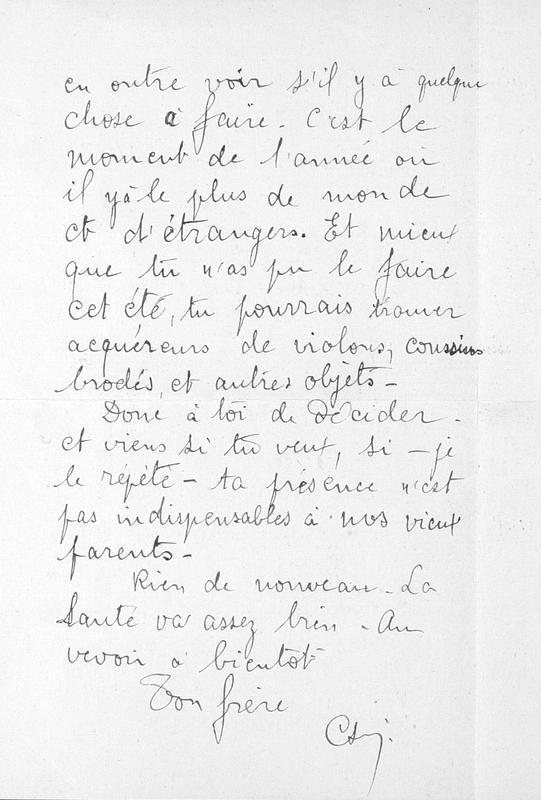 en outre voir s'il y a quelque
chose à faire - C'est le
moment de l'année où
il y a le plus de monde
et d'étrangers. Et mieux
que tu n'as pu le faire
cet été, tu pourrais trouver
acquéreurs de violons, coussins
brodés, et autres objets -
Donc à toi de décider -
et viens si tu veux, si - je
le répète - ta présence n'est
pas indispensables à nos vieux
parents -
Rien de nouveau - La
Santé va assez bien - Au
revoir à bientôt
Ton frère